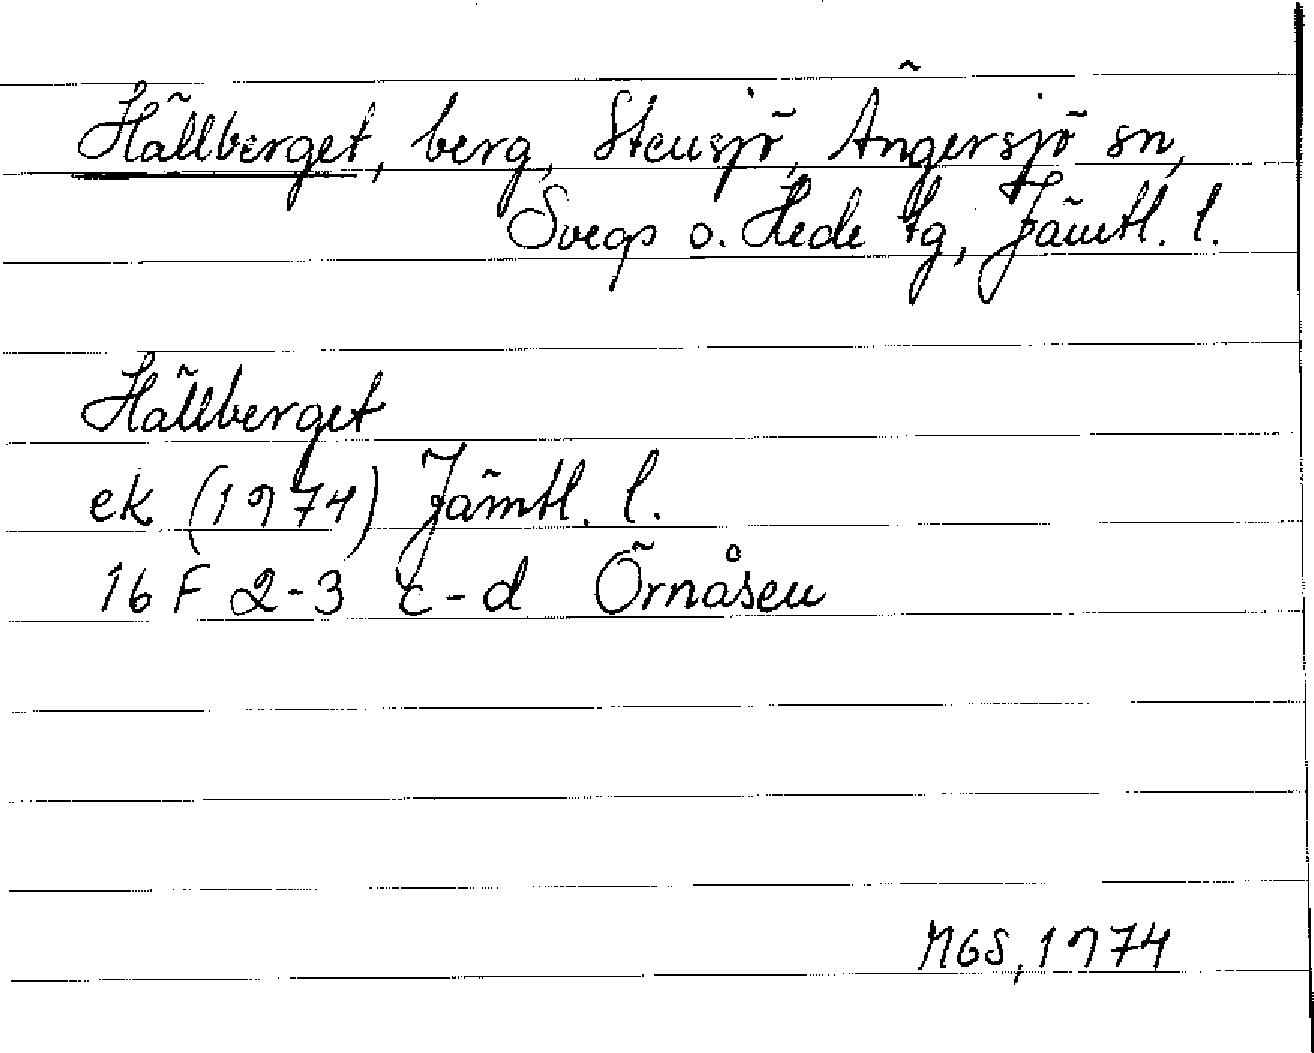 Hällberget, berg, Stensjö, Ängersjö sn,
Svegs o. Hede tg, Jämtl. l.
Hällberget
ek (1974) Jämtl. l.
16 F 2-3 c-d Örnåsen
NGS, 1974